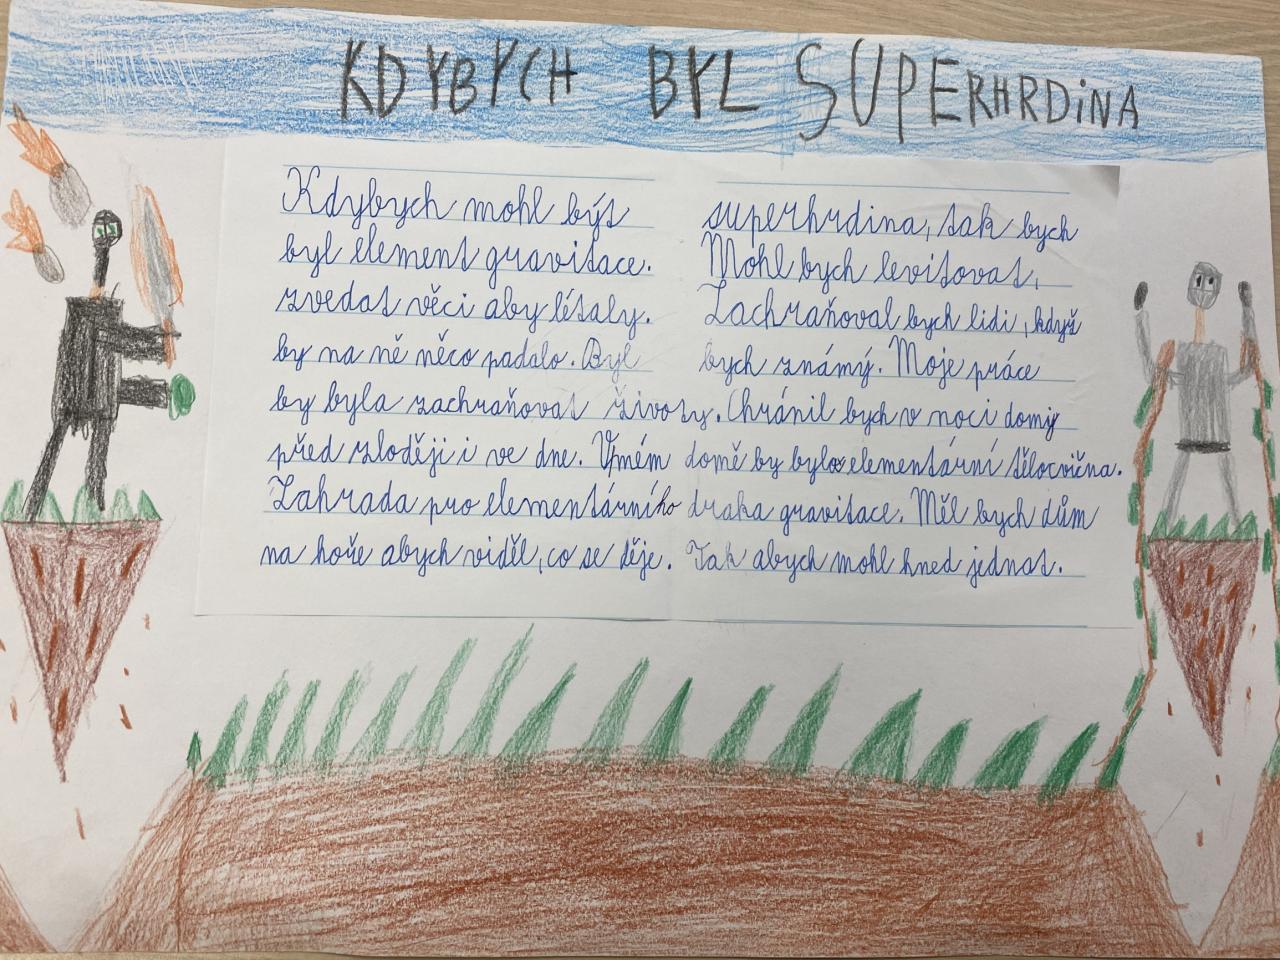 KDYBYCH BYL SUPERHRDINA
Kdybych mohl být superhrdina, tak bych
byl element gravitace. Mohl bych levitovat,
zvedat věci aby létaly. Zachraňoval bych lidi, když
by na ně něco padalo. Byl bych známý. Moje práce
by byla zachraňovat životy. Chránil bych v noci domy
před zloději i ve dne. V mém domě by byla elementární tělocvična.
Zahrada pro elementárního draka gravitace. Měl bych dům
na hoře abych viděl, co se děje. Tak abych mohl hned jednat.